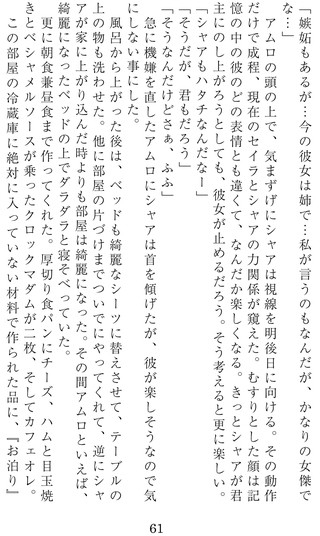 「嫉妬もあるが…今の彼女は姉で…私が言うのもなんだが、かなりの女傑で
な…」
　アムロの頭の上で、気まずげにシャアは視線を明後日に向ける。その動作
だけで成程、現在のセイラとシャアの力関係が窺えた。むすりとした顔は記
憶の中の彼のどの表情とも違くて、なんだか楽しくなる。きっとシャアが君
主にのし上がろうとしても、彼女が止めるだろう。そう考えると更に楽しい。
「シャアもハタチなんだなー」
「そうだが、君もだろう」
「そうなんだけどさぁ、ふふ」
　急に機嫌を直したアムロにシャアは首を傾げたが、彼が楽しそうなので気
にしない事にした。
　風呂から上がった後は、ベッドも綺麗なシーツに替えさせて、テーブルの
上の物も洗わせた。他に部屋の片づけまでついでにやってくれて、逆にシャ
アが家に上がり込んだ時よりも部屋は綺麗になった。その間アムロといえば、
綺麗になったベッドの上でダラダラと寝そべっていた。
　更に朝食兼昼食まで作ってくれた。厚切り食パンにチーズ、ハムと目玉焼
きとベシャメルソースが乗ったクロックマダムが二枚、そしてカフェオレ。
　この部屋の冷蔵庫に絶対に入っていない材料で作られた品に、『お泊り』
61